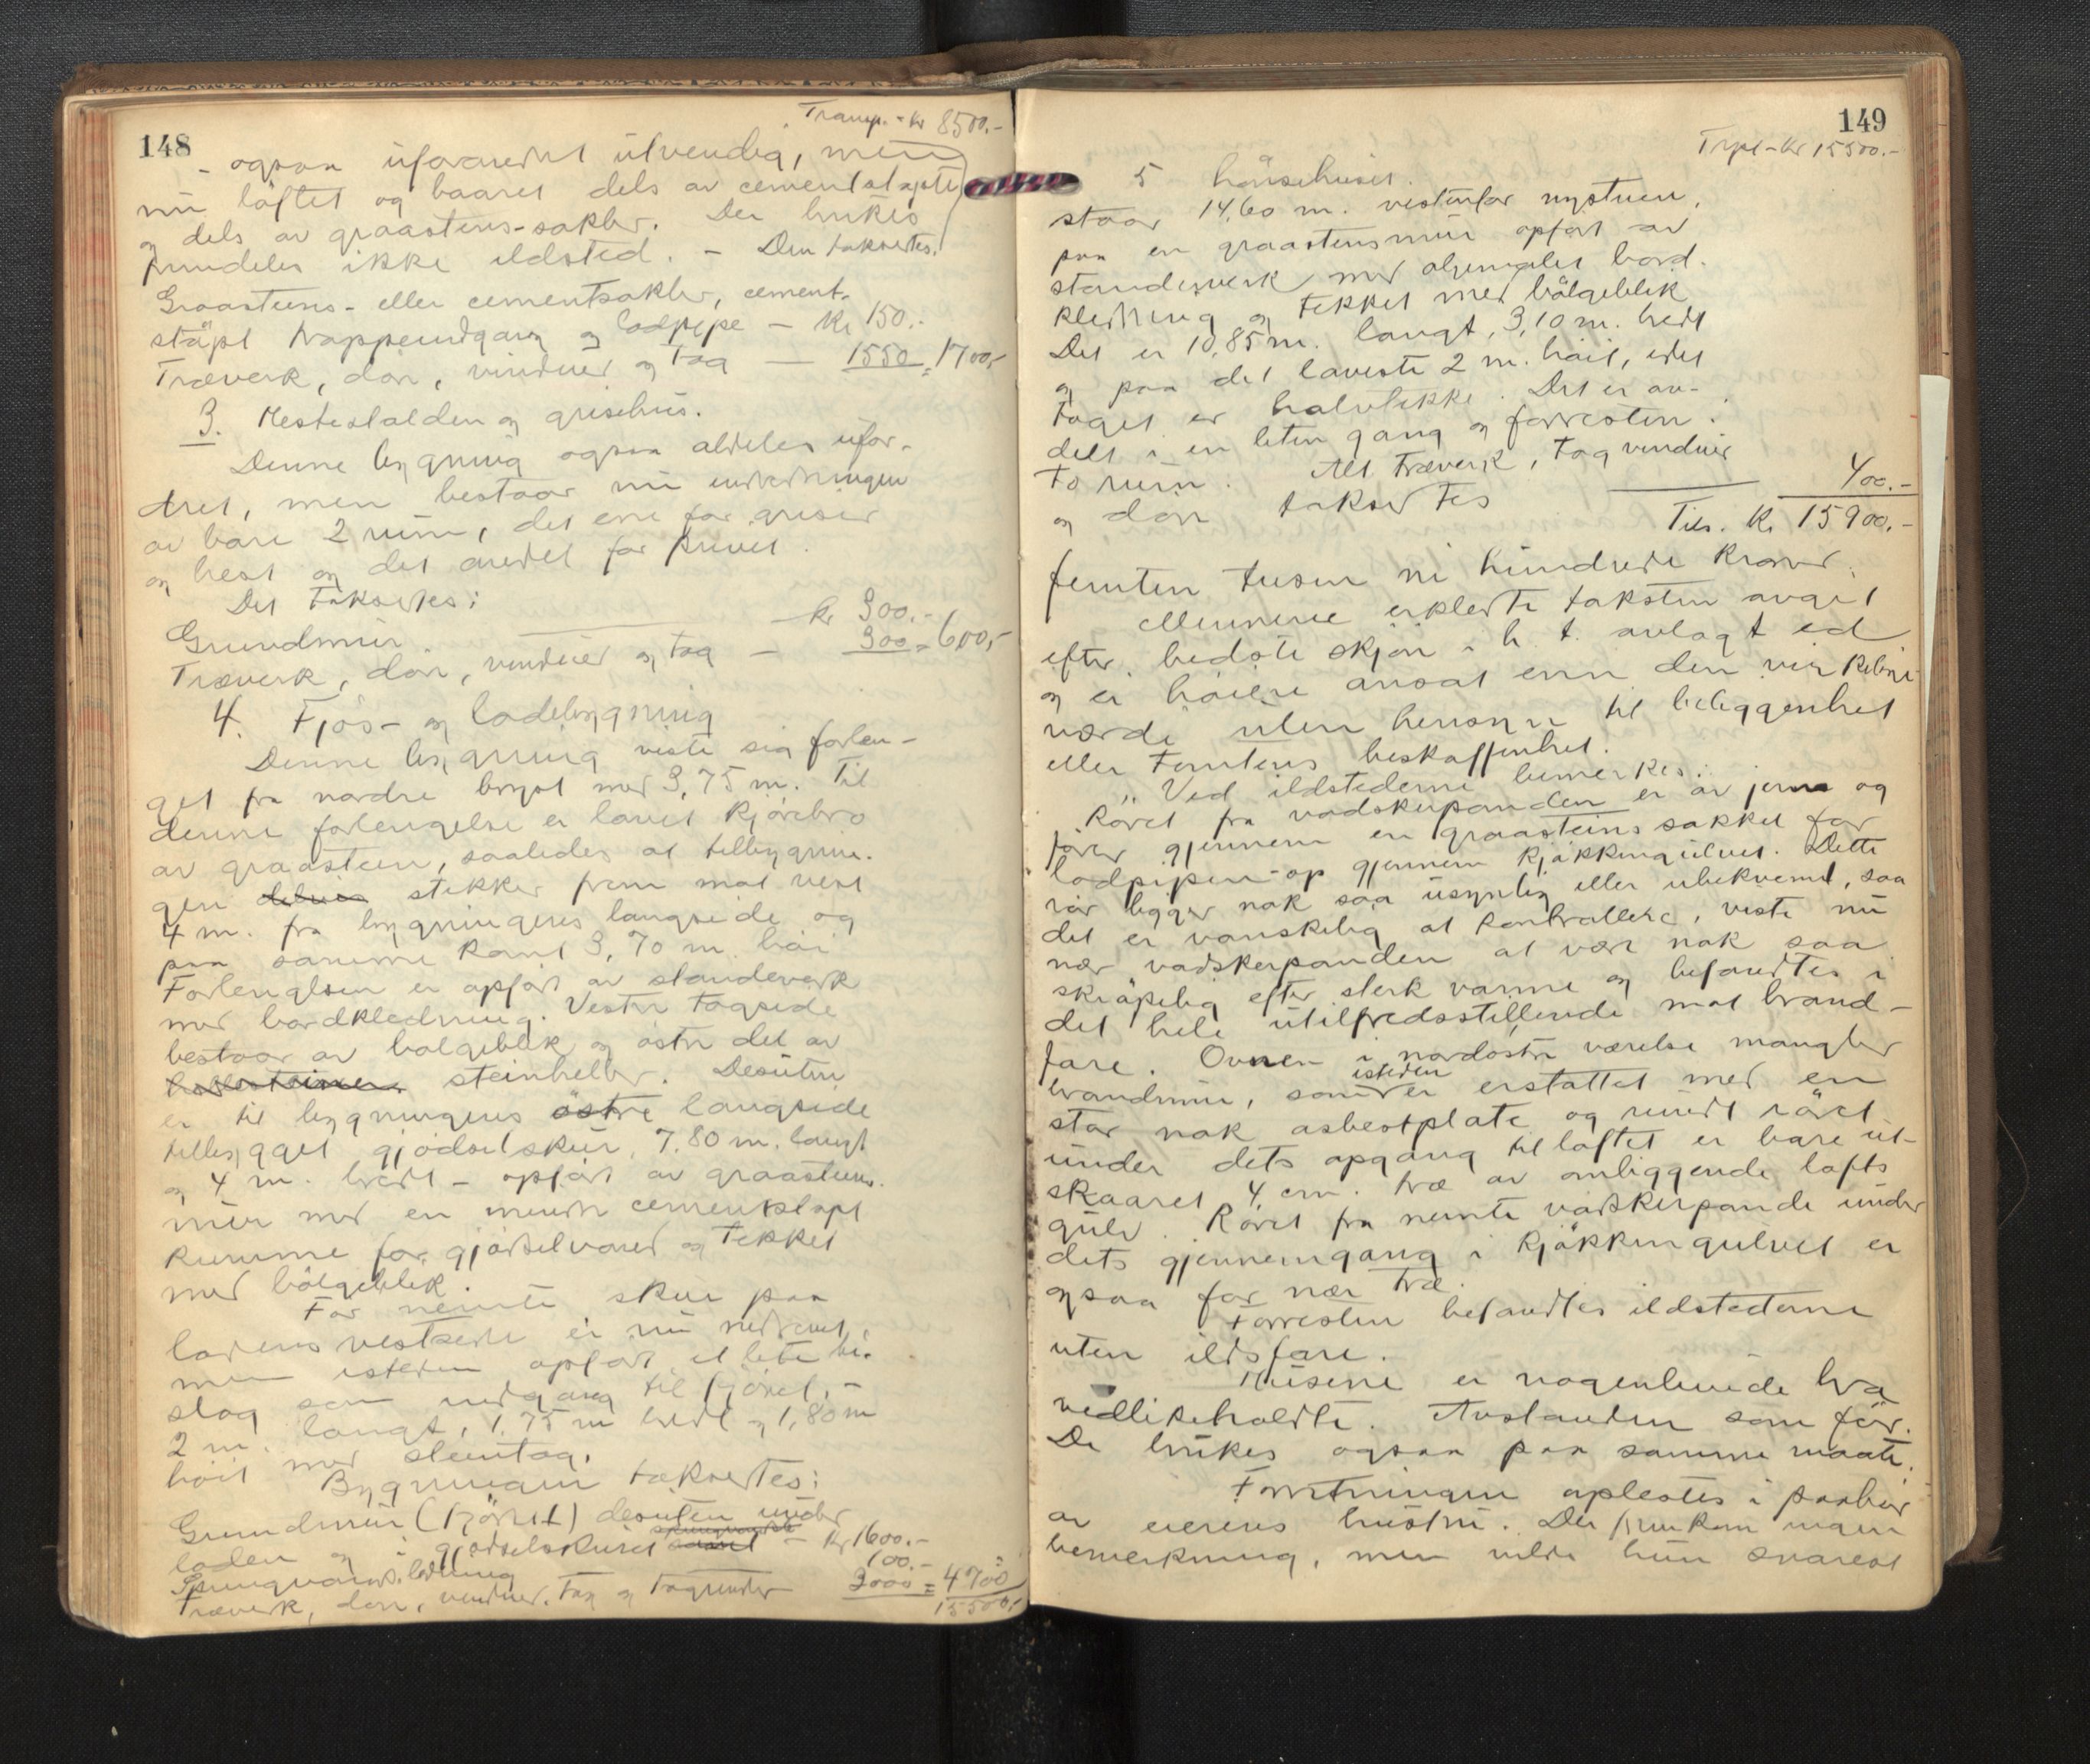 148
Transp. - kr 8500.-
- ogsaa uforandret utvendig, men
nu löftet og baaret dels av cementstöpte
og dels av graastens-sokler. Der brukes
fremdeles ikke ildsted. - Den takseres.
Graastens- eller cementsokler, cement-
stöpt trappeindgang og lodpipe - kr 150.-
Træverk, dör, vinduer og tag - 1550 = 1700,-
3. Hestestalden og grisehus.
Denne bygning ogsaa aldeles ufor-
dret, men bestaar nu indredningen
av bare 2 rum, det ene for griser
og hest og det andet for
Det takseres:
Grundmur - kr 300.-
Træverk, dör, vinduer og tag - 300 = 600,-
4. Fjös- og ladebygning
Denne bygning viste sig forlen-
get fra nordre bryst med 3,75 m. Til
denne forlengelse er lavet kjörebro
av graasteen, saaledes at tilbygnin-
gen stikker frem mot vest
4 m. fra bygningens langside og
paa samme kant 3,70 m höi
Forlenglsen er opfört av standeverk
med bordkledning. Vestre tagside
bestaar av bølgeblik og østre del av
steinheller. Desuten
er til bygningens östre langside
tilbygget gjödselskur, 7,80 m. langt
og 4 m. bredt - opfört av graasteens-
mur med en mindre cementstöpt
kumme for gjödselvand og tekket
med bölgeblik.
Før nevnte skur paa
ladens vestside er nu nedrevet,
men isteden opfört et lite bi-
slag som nedgang til fjöset, -
2 m. langt, 1,75 m bredt og 1,80 m
höit med steintag.
Bygningen takseres:
Grundmur (fjöset) desuten under
laden og i gjödselskuret - kr 1600.-
Springvandsledning 100.-
Træverk, dör, vinduer, tag og tagrender 3000 = 4700
15500,-
149
Trpt - kr 15500.-
5 hönsehuset.
staar 14,60 m. vestenfor nystuen,
paa en graastensmur opfört av
standerverk med oljemalet bord-
kledning og tekket med bölgeblik
Det er 10,85 m. langt, 3,10 m. bredt
og paa det laveste 2 m. höit, idet
taget er halvtekke. Det er av-
delt i en liten gang og forresten i
to rum. Alt træverk, tag vinduer
og dör takseres 400.-
Tils. kr 15900.-
femten tusen ni hundrede kroner.
Mennene erklerte taksten avgit
efter bedste skjön i h. t. avlagt ed
og ei höiere ansat enn den virkelige
værdi uten hensyn til beliggenhet
eller tomtens beskaffenhet.
Ved ildstederne bemerkes:
Röret fra vadskerpanden er av jern og
förer gjennem en graasteins sokkel for
lodpipen op gjennem kjökkengulvet. Dette
rör ligger nok saa usynlig eller ubekvemt, saa
det er vanskelig at kontrollere, viste nu
nær vadskerpanden at være nok saa
skröpelig efter sterk varme og befandtes i
det hele utilfredsstillende mot brand-
fare. Ovnen i nordöstre værelse mangler
brandmur, som isteden er erstattet med en
stor nok asbestplate og rundt röret
under dets opgang til loftet er bare ut-
skaaret 4 cm. træ av omliggende lofts
gulv. Röret fra nevnte vadskerpande under
dets gjennemgang i kjökkengulvet er
ogsaa for nær træ.
Forresten befandtes ildstederne
uten ildsfare.
Husene er nogenlunde bra
vedlikeholdte. Avstanden som för.
De brukes ogsaa paa samme maate.
Forretningen oplestes i paahör
av eierens hustru. Der fremkom ingen
bemerkning, men vilde hun snarest